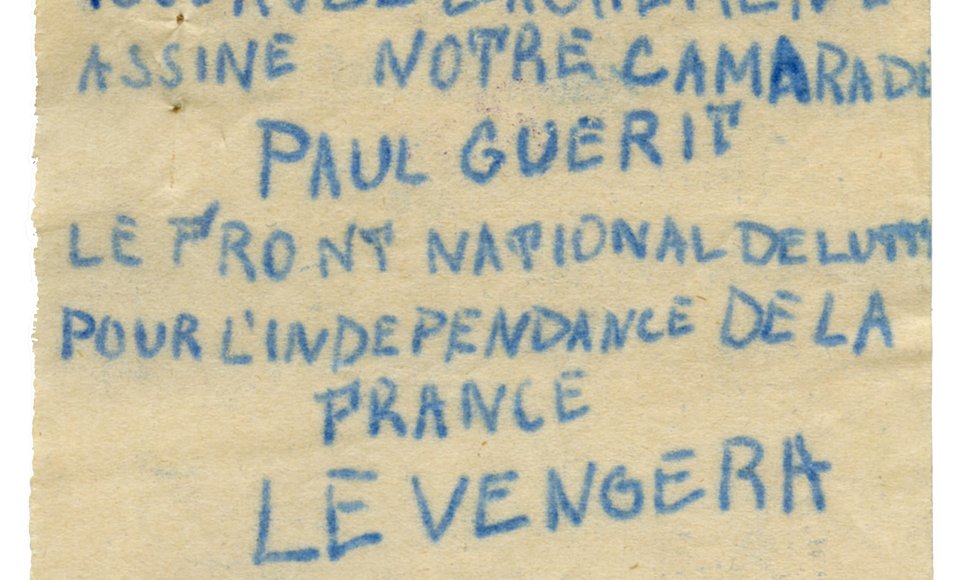 VOUS AVEZ LACHEMENT
ASSINE NOTRE CAMARADE
PAUL GUERIT
LE FRONT NATIONAL DE LUTT
POUR L'INDEPENDANCE DE LA
FRANCE
LE VENGERA